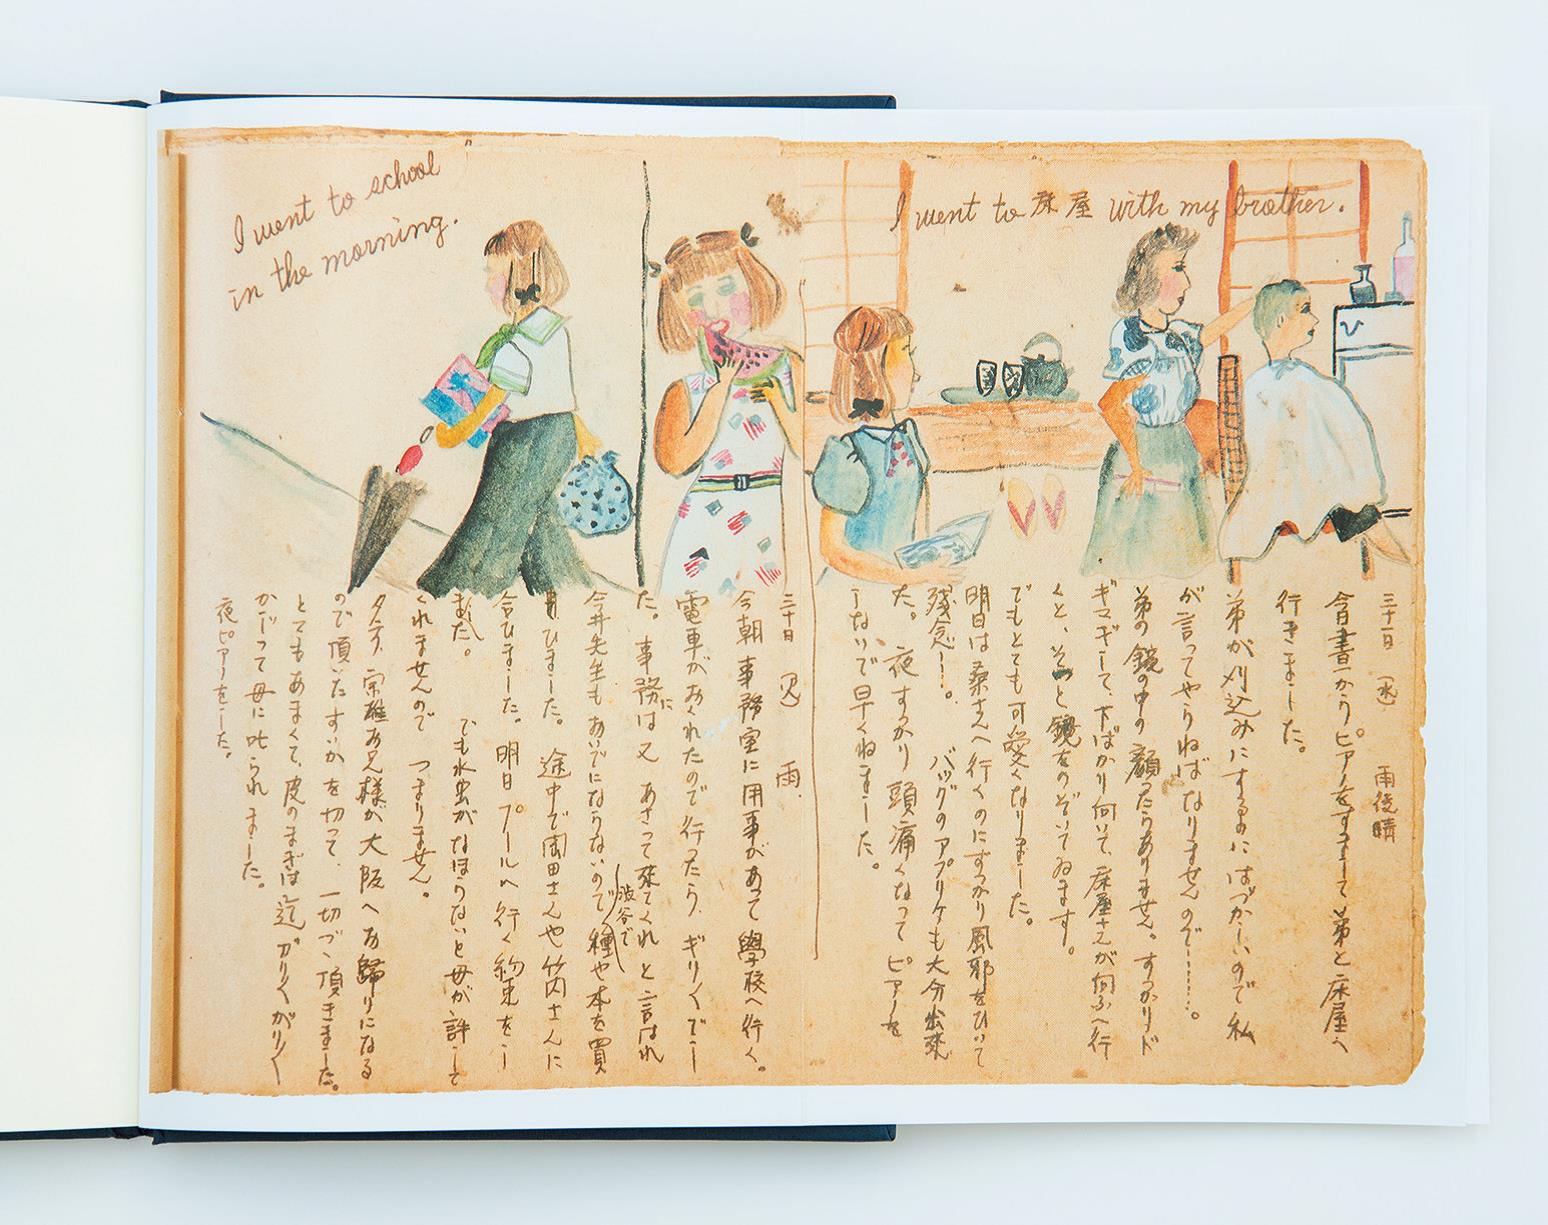 I went to 床屋 with my brother.
三十一日 (水) 雨後晴
からピアノをすまして弟と床屋へ
行きました。
弟が刈込みにするのにはづかしいので私
が言ってやらねばなりませんので……。
弟の鏡の中の顔ったらありません。すっかりド
ギマギして、下ばかり向いて、床屋さんが向ふへ行
くと、そっと鏡をのぞいてゐます。
でもとても可愛くなりました。
明日は桑さんへ行くのにすっかり風邪をひいて
残念―。 バッグのアプリケも大分出来
た。夜すっかり頭痛くなってピアノを
しないで早くねました。
I went to school
in the morning.
三十日 (火) 雨
今朝事務室に用事があって學校へ行く。
電車がおくれたので行ったら、ギリ〱でし
た。事務には又 あさって來てくれと言はれ
今井先生もおいでにならないので渋谷で種や本を買
ひました。途中で園田さんや竹内さんに
会ひました。明日プールへ行く約束をし
ました。 でも水虫がなほらないと母が許して
くれませんので つまりません。
夕方、宗雄お兄様が大阪へお歸りになる
ので頂いたすいかを切って、一切づゝ頂きました。
とてもあまくて、皮のまぎは迄ガリ〱がり〱
かじって母に叱られました。
夜ピアノをした。